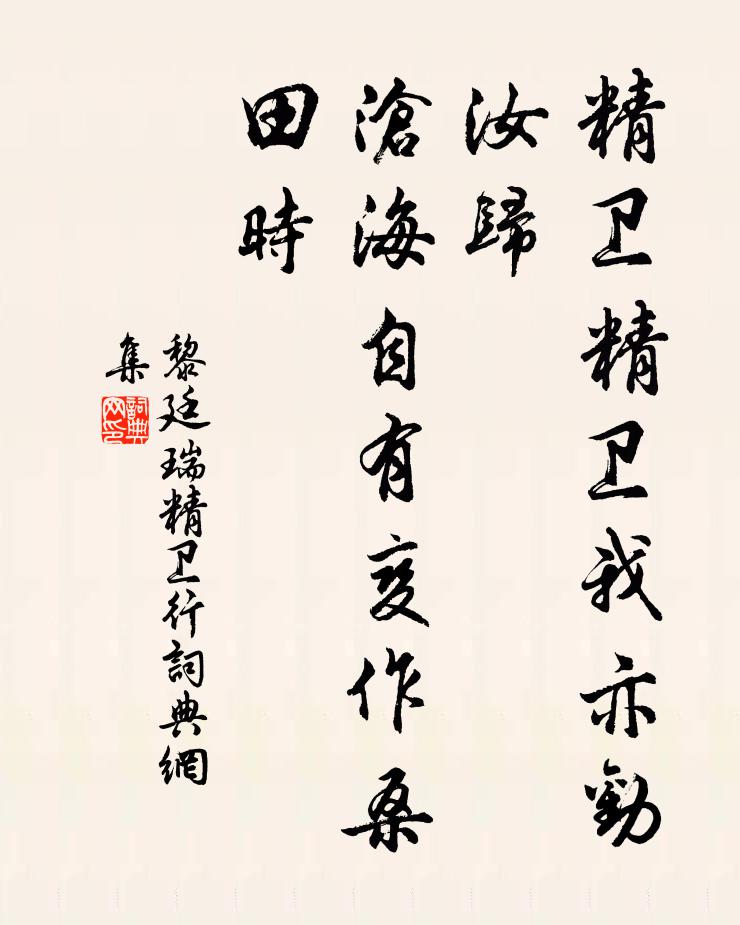 精卫精卫我亦勸
汝歸
滄海自有变作桑
田時
黎廷瑞精卫行詞典網
集
詞典
网印